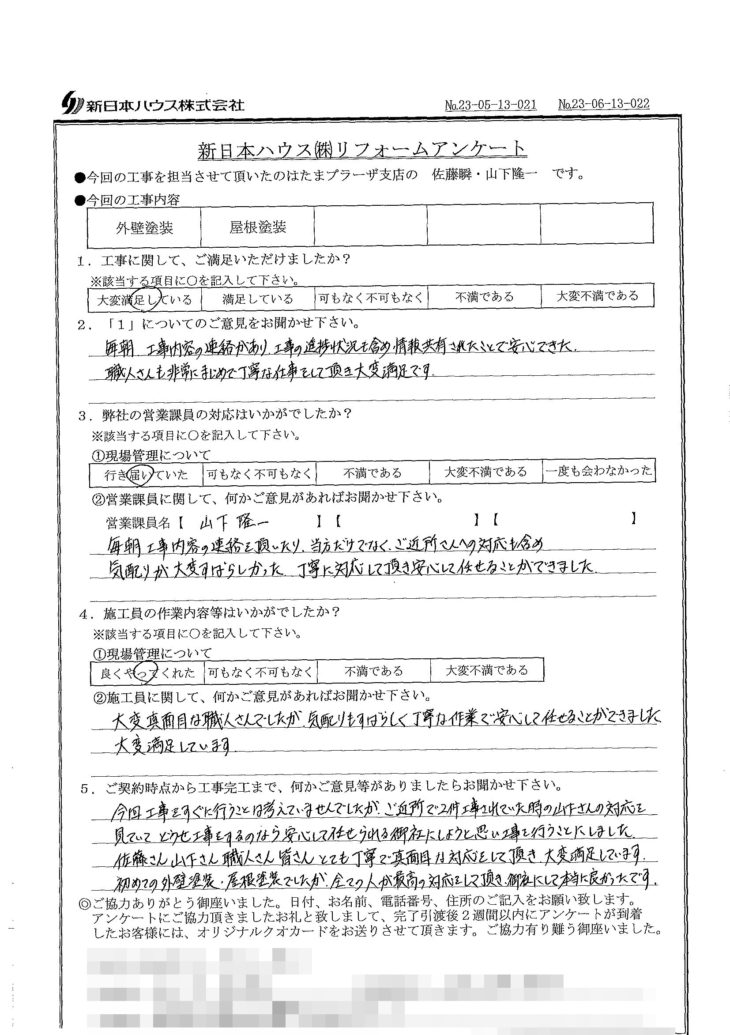 新日本ハウス株式会社 No.23-05-13-021 No.23-06-13-022
新日本ハウス㈱リフォームアンケート
●今回の工事を担当させて頂いたのはたまプラーザ支店の 佐藤瞬・山下隆一 です。
●今回の工事内容
外壁塗装 屋根塗装
1．工事に関して、ご満足いただけましたか？
※該当する項目に○を記入して下さい。
大変満足している 満足している 可もなく不可もなく 不満である 大変不満である
2．「1」についてのご意見をお聞かせ下さい。
毎朝、工事内容の連絡があり、工事の進捗状況も含め情報共有されたことで安心できた。
職人さんも非常にまじめで丁寧な仕事をして頂き大変満足です。
3．弊社の営業課員の対応はいかがでしたか？
※該当する項目に○を記入して下さい。
①現場管理について
行き届いていた 可もなく不可もなく 不満である 大変不満である 一度も会わなかった
②営業課員に関して、何かご意見があればお聞かせ下さい。
営業課員名【 山下 隆一 】【 】【 】
毎朝工事内容の連絡を頂いたり、当方だけでなく、ご近所さんへの対応も含め
気配りが大変すばらしかった。丁寧に対応して頂き安心して任せることができました。
4．施工員の作業内容等はいかがでしたか？
※該当する項目に○を記入して下さい。
①現場管理について
良くやってくれた 可もなく不可もなく 不満である 大変不満である
②施工員に関して、何かご意見があればお聞かせ下さい。
大変真面目な職人さんでしたが、気配りもすばらしく丁寧な作業で安心して任せることができました。
大変満足しています。
5．ご契約時点から工事完工まで、何かご意見等がありましたらお聞かせ下さい。
今回工事をすぐに行うことは考えていませんでしたが、ご近所で2件工事されていた時の山下さんの対応を
見ていて どうせ工事をするのなら安心して任せられる御社にしようと思い工事を行うことにしました。
佐藤さん、山下さん、職人さん、皆さん とても丁寧で真面目な対応をして頂き、大変満足しています。
初めての外壁塗装・屋根塗装でしたが、全ての人が最高の対応をして頂き、御社にして本当に良かったです。
◎ご協力ありがとう御座いました。日付、お名前、電話番号、住所のご記入をお願い致します。
アンケートにご協力頂きましたお礼と致しまして、完了引渡後2週間以内にアンケートが到着
したお客様には、オリジナルクオカードをお送りさせて頂きます。ご協力有り難う御座いました。